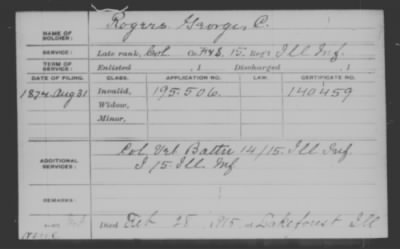 NAME OF SOLDIER: Rogers George, C.
SERVICE: Late rank, Col. Co. F&S. 15. Reg't Ill Inf
TERM OF SERVICE: Enlisted , 1 Discharged , 1
DATE OF FILING. CLASS. APPLICATION NO. LAW. CERTIFICATE NO.
1874 Aug 31 Invalid, 195.506. 140459
Widow,
Minor,
ADDITIONAL SERVICES: Col. Vet Battn 14/15. Ill Inf.
I 15 Ill. Inf
REMARKS:
Died Feb 28 1915, at Lake forest Ill